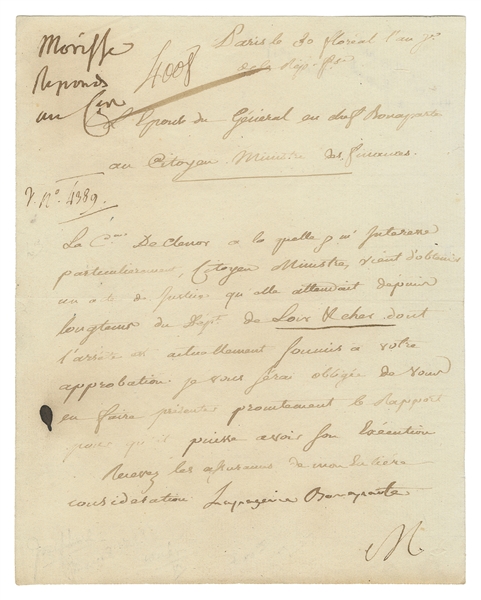 Morisse
Reponds
au
4008
Paris le 30 floreal l'an 7e
de la Rep. fse
L'Epouse du Général en chef Bonaparte
au Citoyen Ministre des finances.
N.° 4389.
La Cnne DeClenor a la quelle je m'Interesse
particulierement, Citoyen Ministre, vient d'obtenir
un acte de Justice qu'elle attendait depuis
longtems du Dept. de Loir & cher dont
l'arrêté est actuellement soumis à votre
approbation. je vous serai obligée de vous
en faire présenter promtement le Rapport
pour qu'il puisse avoir son Exécution
Recevez les assurances de mon Entière
considération Lapagerie Bonaparte
M